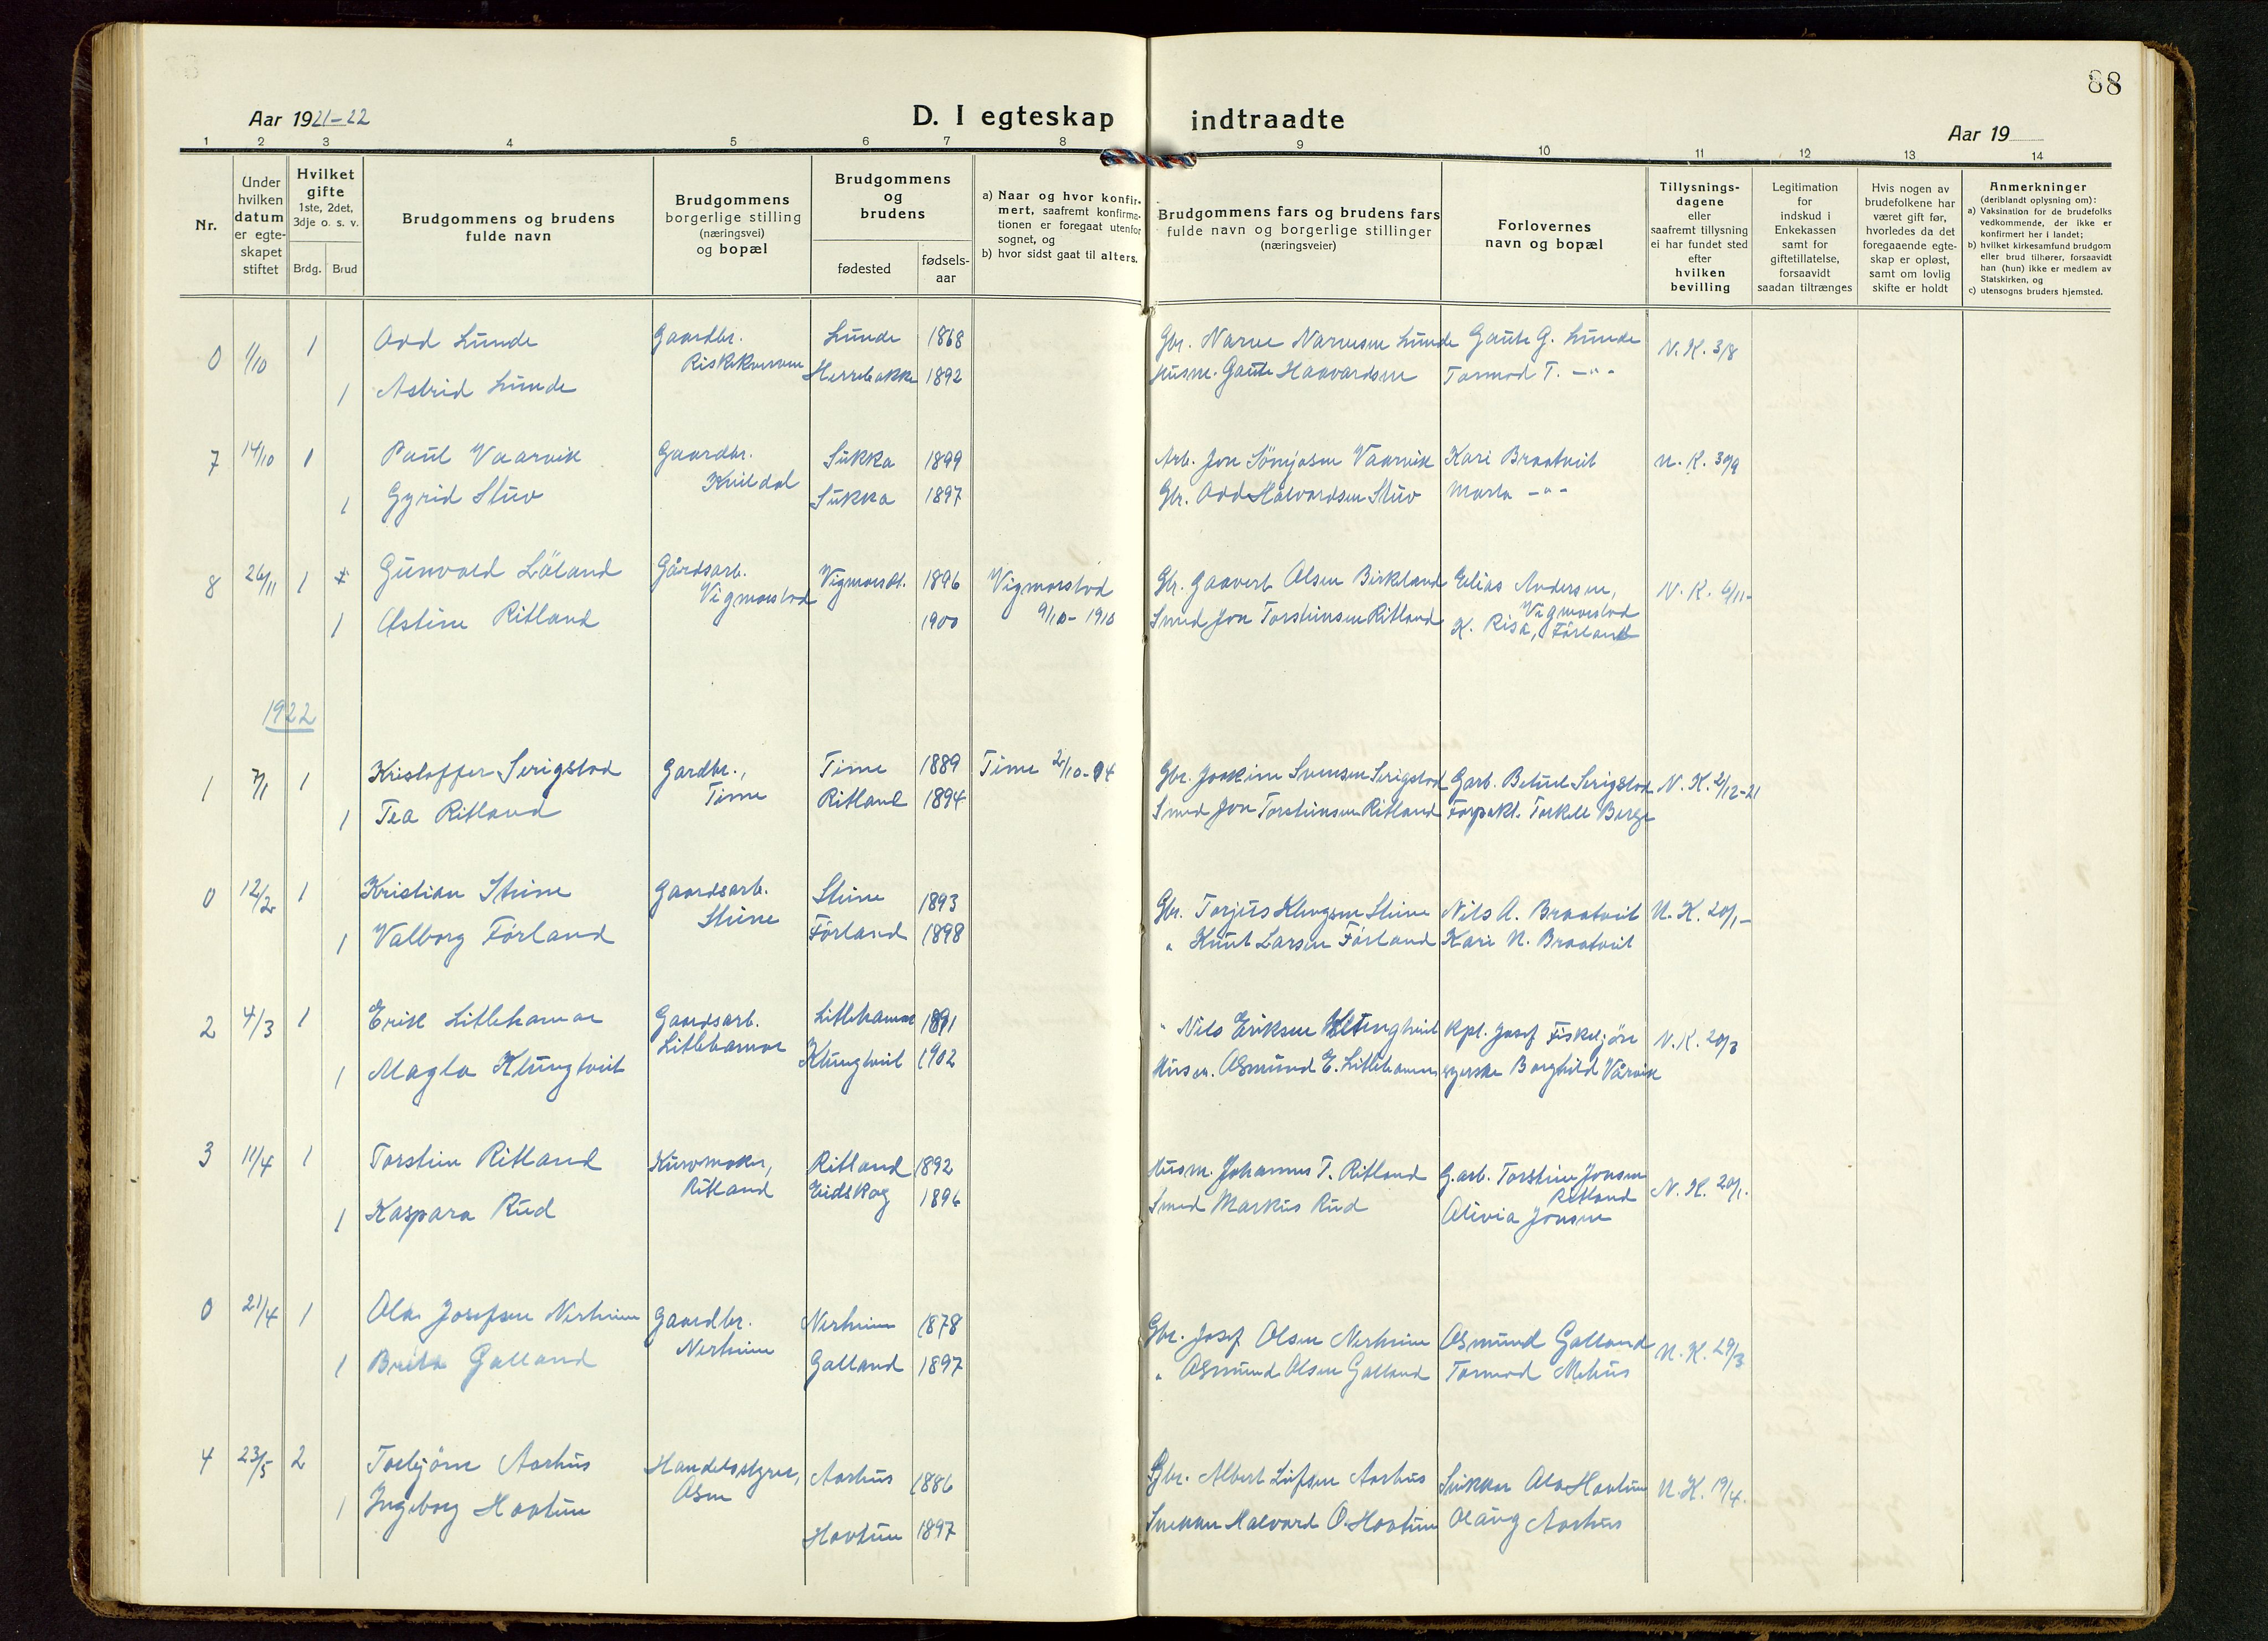 88
Aar 1921-22
D. I egteskap indtraadte
Aar 19
1 2 3 4 5 6 7 8 9 10 11 12 13 14
Nr.
Under hvilken datum er egte-skapet stiftet
Hvilket gifte 1ste, 2det, 3dje o. s. v.
Brdg. Brud
Brudgommens og brudens fulde navn
Brudgommens borgerlige stilling (næringsvei) og bopæl
Brudgommens og brudens
fødested
fødsels-aar
a) Naar og hvor konfir-mert, saafremt konfirma-tionen er foregaat utenfor sognet, og
b) hvor sidst gaat til alters.
Brudgommens fars og brudens fars fulde navn og borgerlige stillinger (næringsveier)
Forlovernes navn og bopæl
Tillysnings-dagene eller saafremt tillysning ei har fundet sted efter hvilken bevilling
Legitimation for indskud i Enkekassen samt for giftetillatelse, forsaavidt saadan tiltrænges
Hvis nogen av brudefolkene har været gift før, hvorledes da det foregaaende egte-skap er opløst, samt om lovlig skifte er holdt
Anmerkninger (deriblandt oplysning om):
a) Vaksination for de brudefolks vedkommende, der ikke er konfirmert her i landet;
b) hvilket kirkesamfund brudgom eller brud tilhører, forsaavidt han (hun) ikke er medlem av Statskirken, og
c) utensogns bruders hjemsted.
0 1/10 1 Odd Lunde Gaardbr. Lunde 1868 Gbr. Narve Narvesen Lunde Gaute G. Lunde N. K. 3/8
Riskekvernen
1 Astrid Lunde Herrebakke 1892 Husm. Gaute Haavardsen Tormod T. -"-
7 14/10 1 Paul Vaarvik Gaardbr. Sukka 1899 Arb. Jon Vaarvik Kari Braatveit N. K. 30/9
Kvildal
1 Gyrid Stuv Sukka 1897 Gbr. Odd Halvardsen Stuv Marta -"-
8 26/11 1 Gunvald Löland Gårdsarb. Vigmorst. 1896 Vigmorstad Gbr. Gaavert Olsen Birkeland Elias Andersen, N. K. 6/11-
Vigmorstad 9/10-1910 Vigmorstad
1 Ostine Ritland 1900 Smed Jon Torsteinsen Ritland K. Riså, Förland
1922
1 7/1 1 Kristoffer Serigstad Gardbr., Time 1889 Time 2/10-04 Gbr. Joakim Svensen Serigstad Garb. Betuel Serigstad N. K. 2/12-21
Time
1 Tea Ritland Ritland 1894 Smed Jon Torsteinsen Ritland Forpakt. Torkell Berge
0 12/2 1 Kristian Steine Gaardsarb. Steine 1893 Gbr. Torjus Steine Nils A. Braatveit N. K. 20/1-
Steine
1 Valborg Förland Förland 1898 " Knut Larsen Förland Kari N. Braatveit
2 4/3 1 Erik Litlehamar Gaardsarb. Litlehamar 1891 " Nils Eriksen Klungtveit Kpl. Josef Fisketjön N. K. 20/3
Litlehamar
1 Magla Klungtveit Klungtveit 1902 Osmund E. Litlehamar Borghild Vårvik
3 11/4 1 Torstein Ritland Kurvmaker, Ritland 1892 Husm. Johannes T. Ritland G.arb. Torstein Jonsen N. K. 20/1.
Ritland Ritland
1 Kaspara Rud Eidskog 1896 Smed Markus Rud Olivia Jonsen
0 21/4 1 Ola Josefsen Nerheim Gaardbr. Nerheim 1878 Gbr. Josef Olsen Nerheim Osmund Galland N. K. 29/3
Nerheim
1 Brita Galland Galland 1897 " Osmund Olsen Galland Tormod Mehus
4 23/5 2 Torbjörn Aarhus Aarhus 1886 Gbr. Albert Aarhus Ola Hovtun N. K. 19/4.
1 Ingeborg Hovtun Hovtun 1897 Halvard O. Hovtun Olaug Aarhus